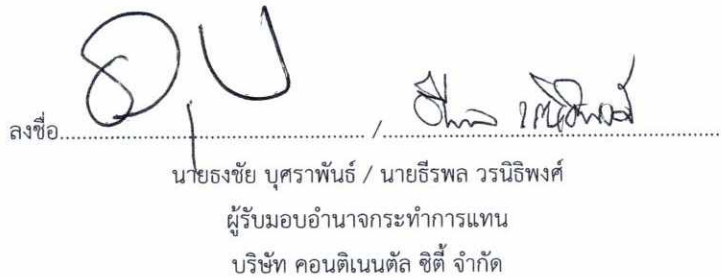 ลงชื่อ............................................................ /............................................................
นายธงชัย บุศราพันธ์ / นายธีรพล วรนิธิพงศ์
ผู้รับมอบอำนาจกระทำการแทน
บริษัท คอนติเนนตัล ซิตี้ จำกัด